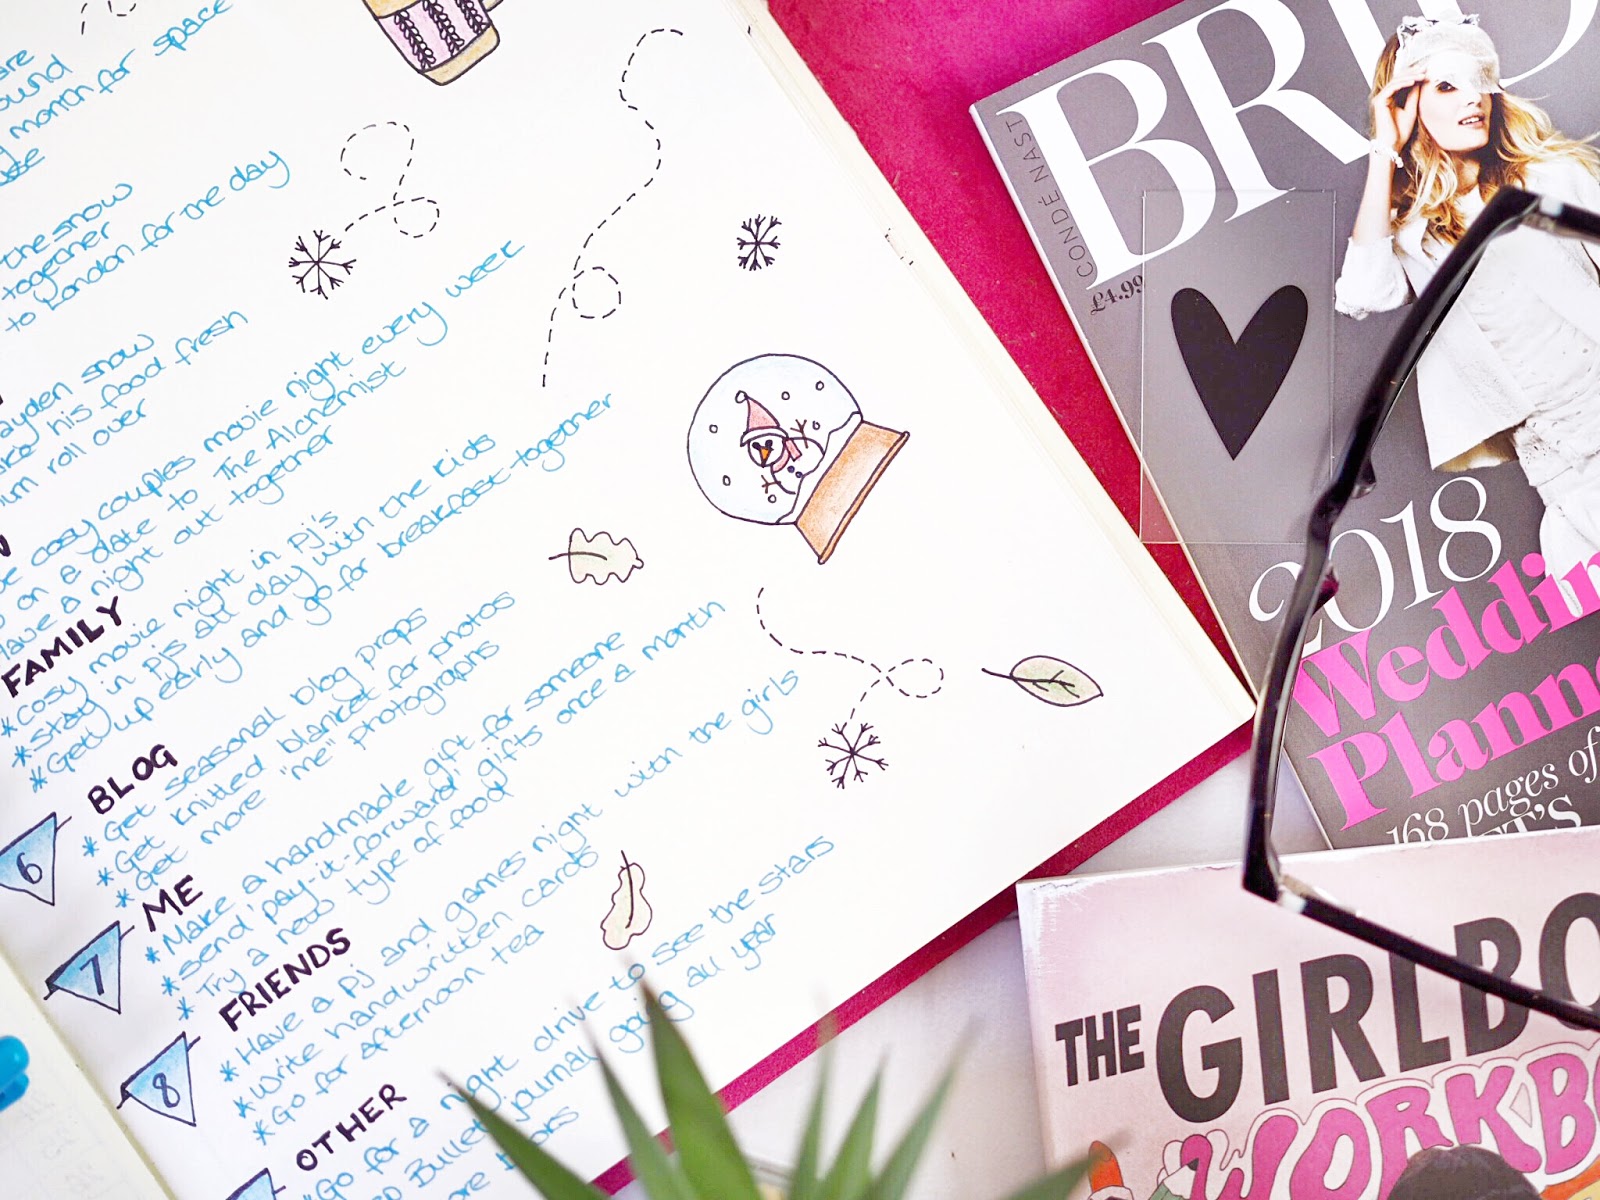 are
ound
month for space
the snow
together
to London for the day
ayden snow
his food fresh
roll over
cosy couples movie night every week
on a date to The Alchemist
Have a night out together
FAMILY
*Cosy movie night in Pj's
*Stay in Pj's all day with the kids
*Get up early and go for breakfast together
6
BLOG
*Get seasonal blog props
*Get knitted blanket for photos
*Get more "me" photographs
7
ME
*Make a handmade gift for someone
*Send 'pay-it-forward' gifts once a month
*Try a new type of food
8
FRIENDS
*Have a Pj and games night with the girls
*Write handwritten cards
*Go for afternoon tea
OTHER
*Go for a night drive to see the stars
Bullet journal going all year
BRID
CONDÉ NAST
£4.99
2018
Weddin
Plann
168 pages of
T'S
THE GIRLBO
WORKBO